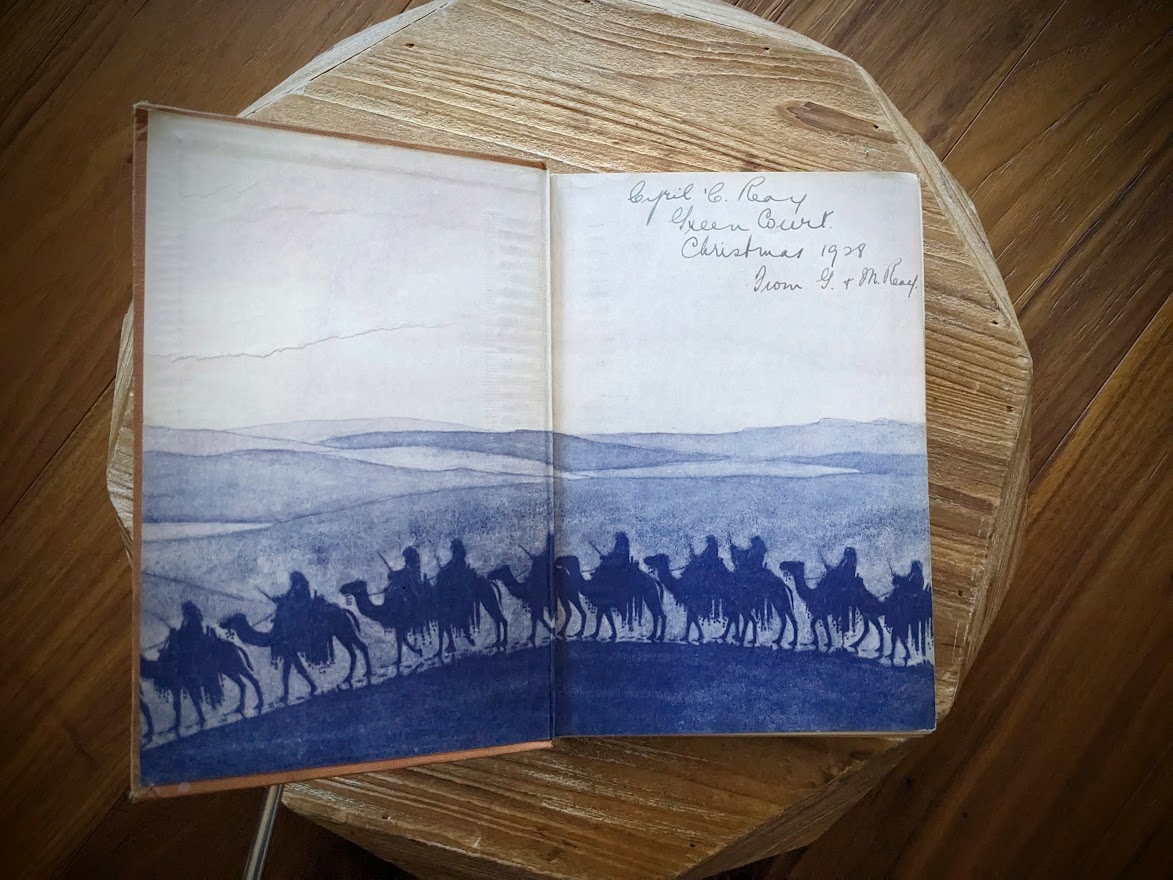 Cyril C. Reay
Green Court.
Christmas 1928
From G. & M. Reay.